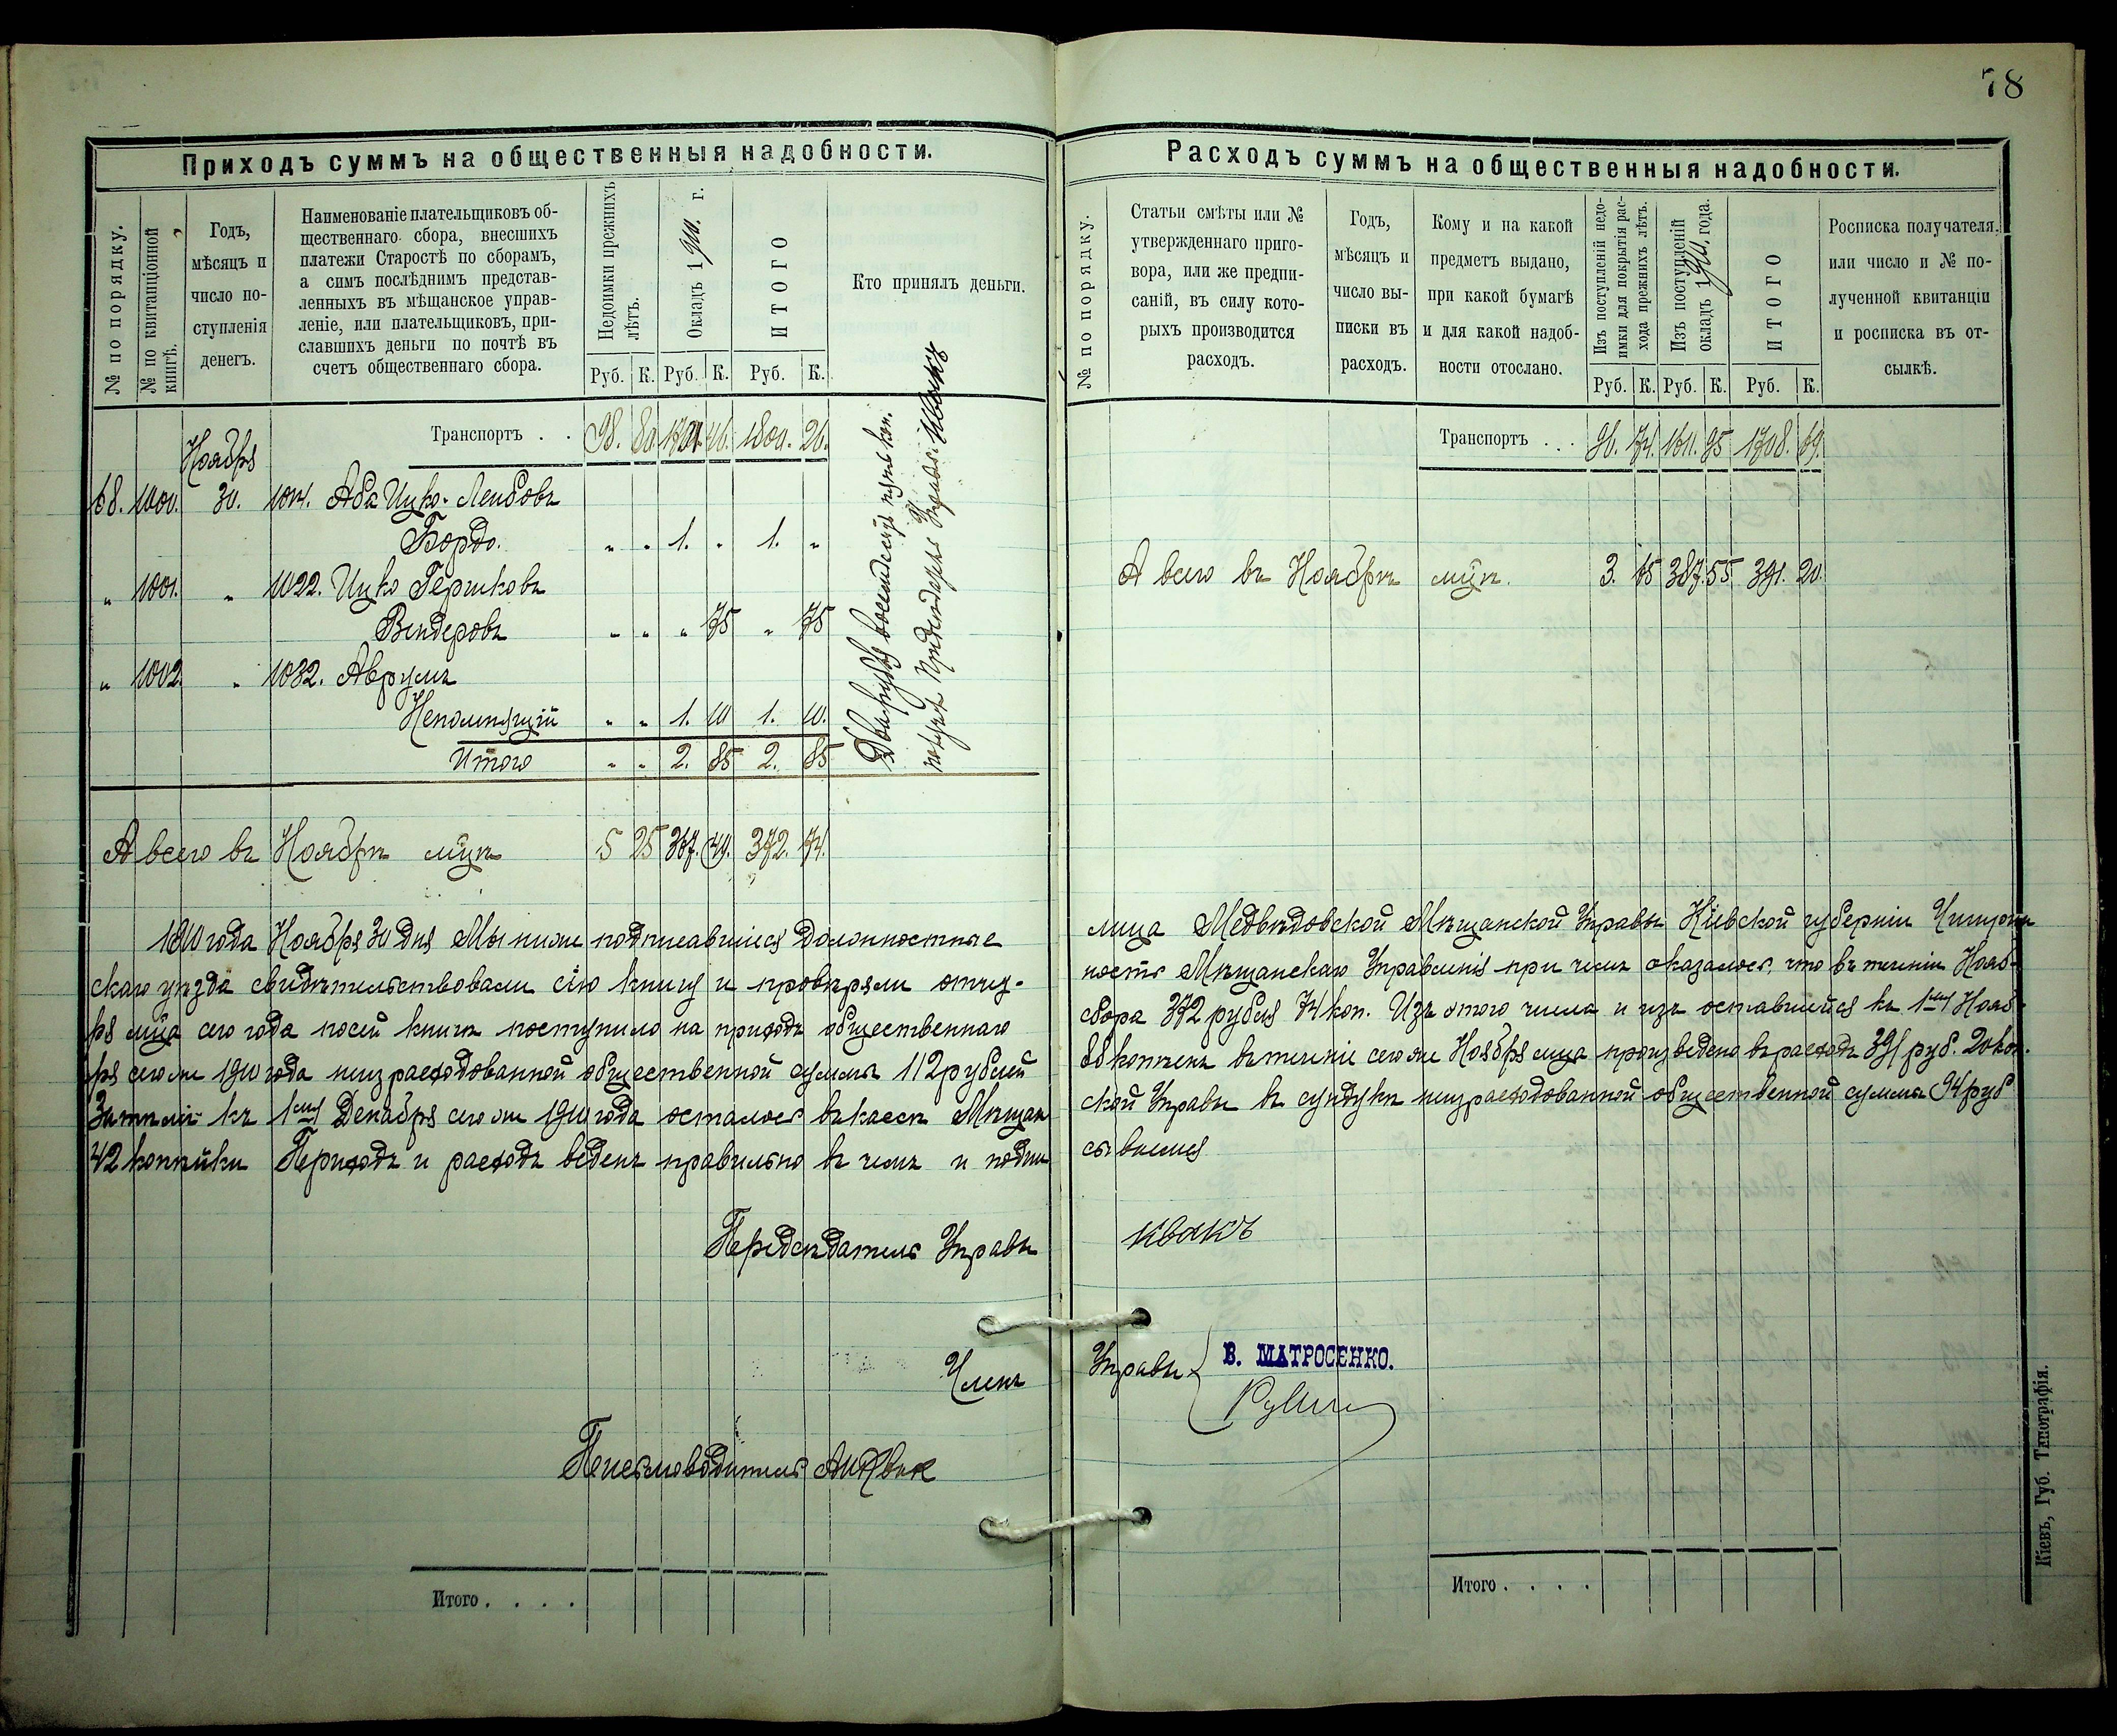 78
Приходъ суммъ на общественныя надобности.
№ по порядку.
№ по квитанціонной книгѣ.
Годъ,
мѣсяцъ и
число по-
ступленія
денегъ.
Наименованіе плательщиковъ об-
щественнаго сбора, внесшихъ
платежи Старостѣ по сборамъ,
а симъ послѣднимъ представ-
ленныхъ въ мѣщанское управ-
леніе, или плательщиковъ, при-
славшихъ деньги по почтѣ въ
счетъ общественнаго сбора.
Недоимки прежнихъ
лѣтъ.
Окладъ 1910. г.
ИТОГО
Кто принялъ деньги.
Руб. К. Руб. К. Руб. К.
Транспортъ . . 98. 80. 1701. 46. 1800. 26.
Ноября
68. 1000. 30. 1014. Аба Ицко-Лейбовъ
Бордо. " " 1. " 1. "
" 1001. " 1022. Ицко Гершковъ
Вендеровъ " " " 75 " 75
" 1002. " 1032. Аврумъ
Непомнящій " " 1. 10 1. 10.
Итого " " 2. 85 2. 85
Два рубля восемдесятъ пять коп.
получ. Председатель Управы Квакъ
А всего въ Ноябрѣ мцѣ 5 25 367. 49. 372. 74.
1910 года Ноября 30 дня Мы ниже подписавшиеся Должностные
скаго уѣзда свидѣтельствовали сію книгу и провѣряли отчет-
ря мца сего года посей книгѣ поступило на приходъ общественнаго
ря сего же 1910 года неизрасходованной общественной суммы 112 рублей
Затѣмъ къ 1му Декабря сего же 1910 года осталось въ кассѣ Мѣщан
42 копѣйки Приходъ и расходъ веденъ правильно въ чемъ и подпи
Предсѣдатель Управы
Членъ
Письмоводитель
Итого . . . .
Расходъ суммъ на общественныя надобности.
№ по порядку.
Статьи смѣты или №
утвержденнаго приго-
вора, или же предпи-
саній, въ силу кото-
рыхъ производится
расходъ.
Годъ,
мѣсяцъ и
число вы-
писки въ
расходъ.
Кому и на какой
предметъ выдано,
при какой бумагѣ
и для какой надоб-
ности отослано.
Изъ поступленій недо-
имки для покрытія рас-
хода прежнихъ лѣтъ.
Изъ поступленій
окладъ 1910. года.
ИТОГО
Росписка получателя,
или число и № по-
лученной квитанціи
и росписка въ от-
сылкѣ.
Руб. К. Руб. К. Руб. К.
Транспортъ . . . 96. 74. 1611. 95 1708. 69.
А всего въ Ноябрѣ мцѣ. 3. 65 387. 55 391. 20.
лица Медвѣдовской Мѣщанской Управы Кіевской губерніи Чигирин
ность Мѣщанскаго Управленія при чемъ оказалось, что въ теченіи Нояб-
сбора 372 рубля 74 коп. Изъ этого числа и изъ оставшейся къ 1му Нояб-
88 копѣекъ въ теченіе сего же Ноября мца произведено въ расходъ 391 руб. 20 коп.
ской Управы въ сундукѣ неизрасходованной общественной суммы 94 руб
сываемся
Квакъ
Управы
В. МАТРОСЕНКО.
Итого . . . .
Кіевъ, Губ. Типографія.